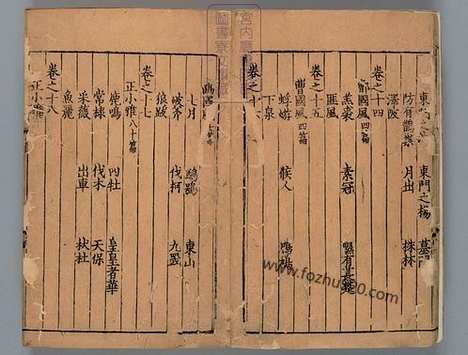 東門之楊 墓門
防有鵲巢 月出 株林
澤陂
卷之十四
檜國風四篇
羔裘 素冠 隰有萇楚
匪風
卷之十五
曹國風四篇
蜉蝣 候人 鳲鳩
下泉
卷之十六
七月 鴟鴞 東山
破斧 伐柯 九罭
狼跋
卷之十七
正小雅八十篇
鹿鳴 四牡 皇皇者華
常棣 伐木 天保
采薇 出車 杕杜
魚麗
卷之十八
正小雅
www.fozhu900.com